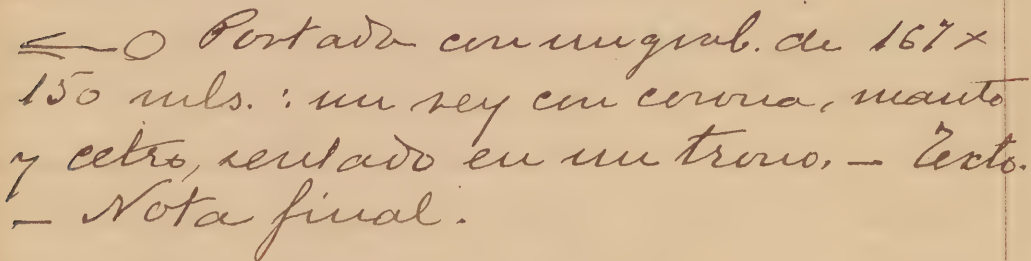 Portada con un grab. de 167 ×
150 mls.: un rey con corona, manto
y cetro, sentado en un trono. — Texto.
— Nota final.